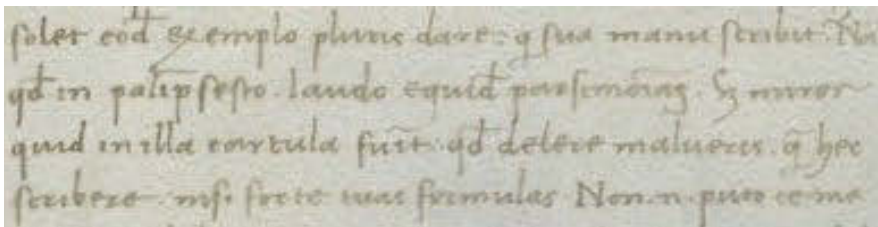 solet eod̄ exemplo pluris dare. q̄ sua manu scribit. Na
qd̄ in palip̄sesto. laudo equid̄ parsimoniaȝ. Sȝ miror
quid in illa cartula fuīt. qd̄ delere malueris. q̄ hec
scribere. nisi forte tuas formulas Non. n. puto te me